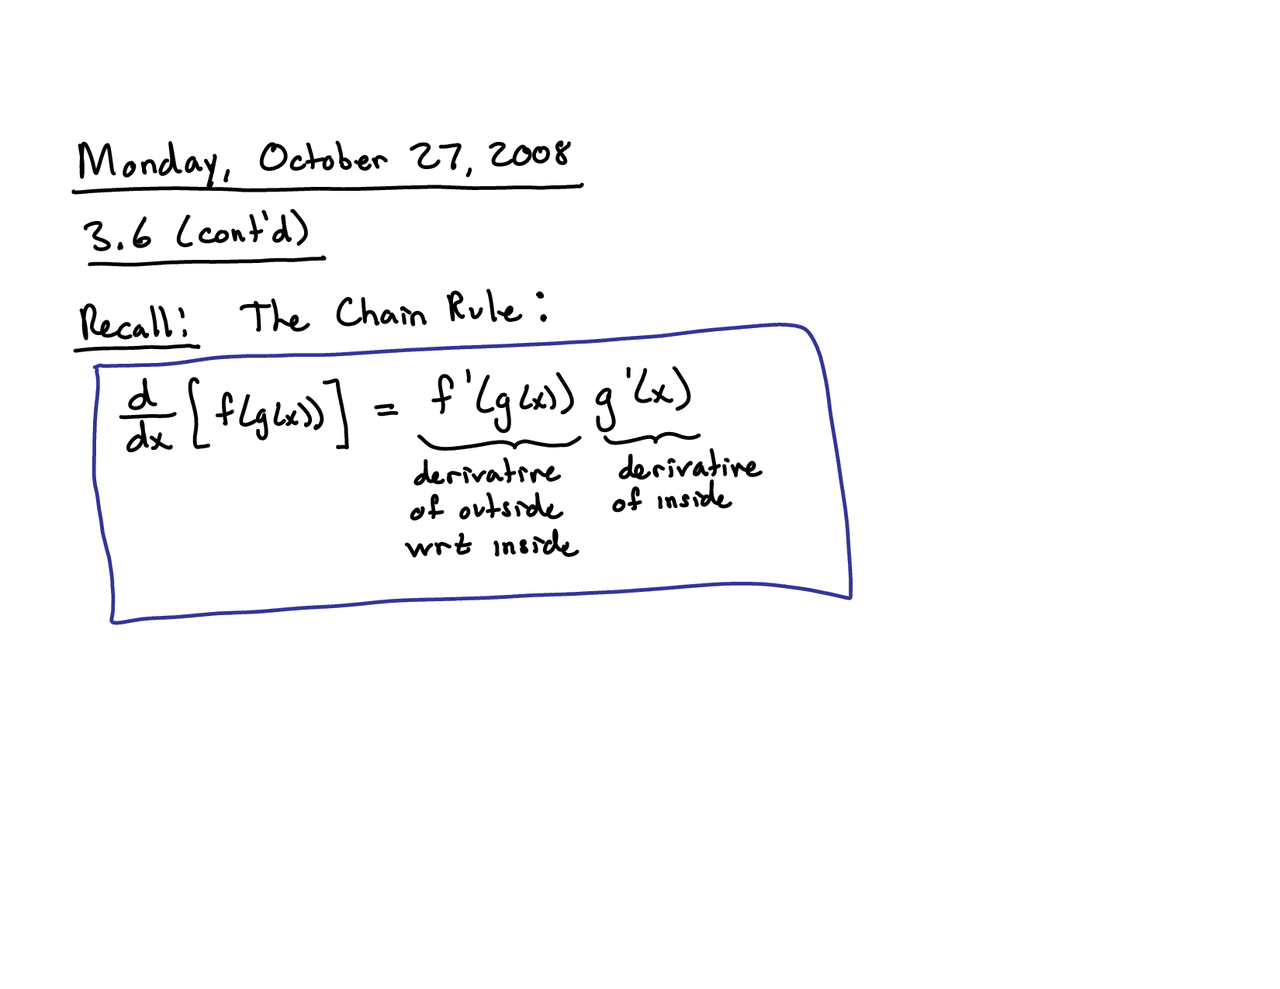 Monday, October 27, 2008
3.6 (cont'd)
Recall: The Chain Rule:
d/dx [f(g(x))] = f'(g(x)) g'(x)
derivative of outside wrt inside
derivative of inside